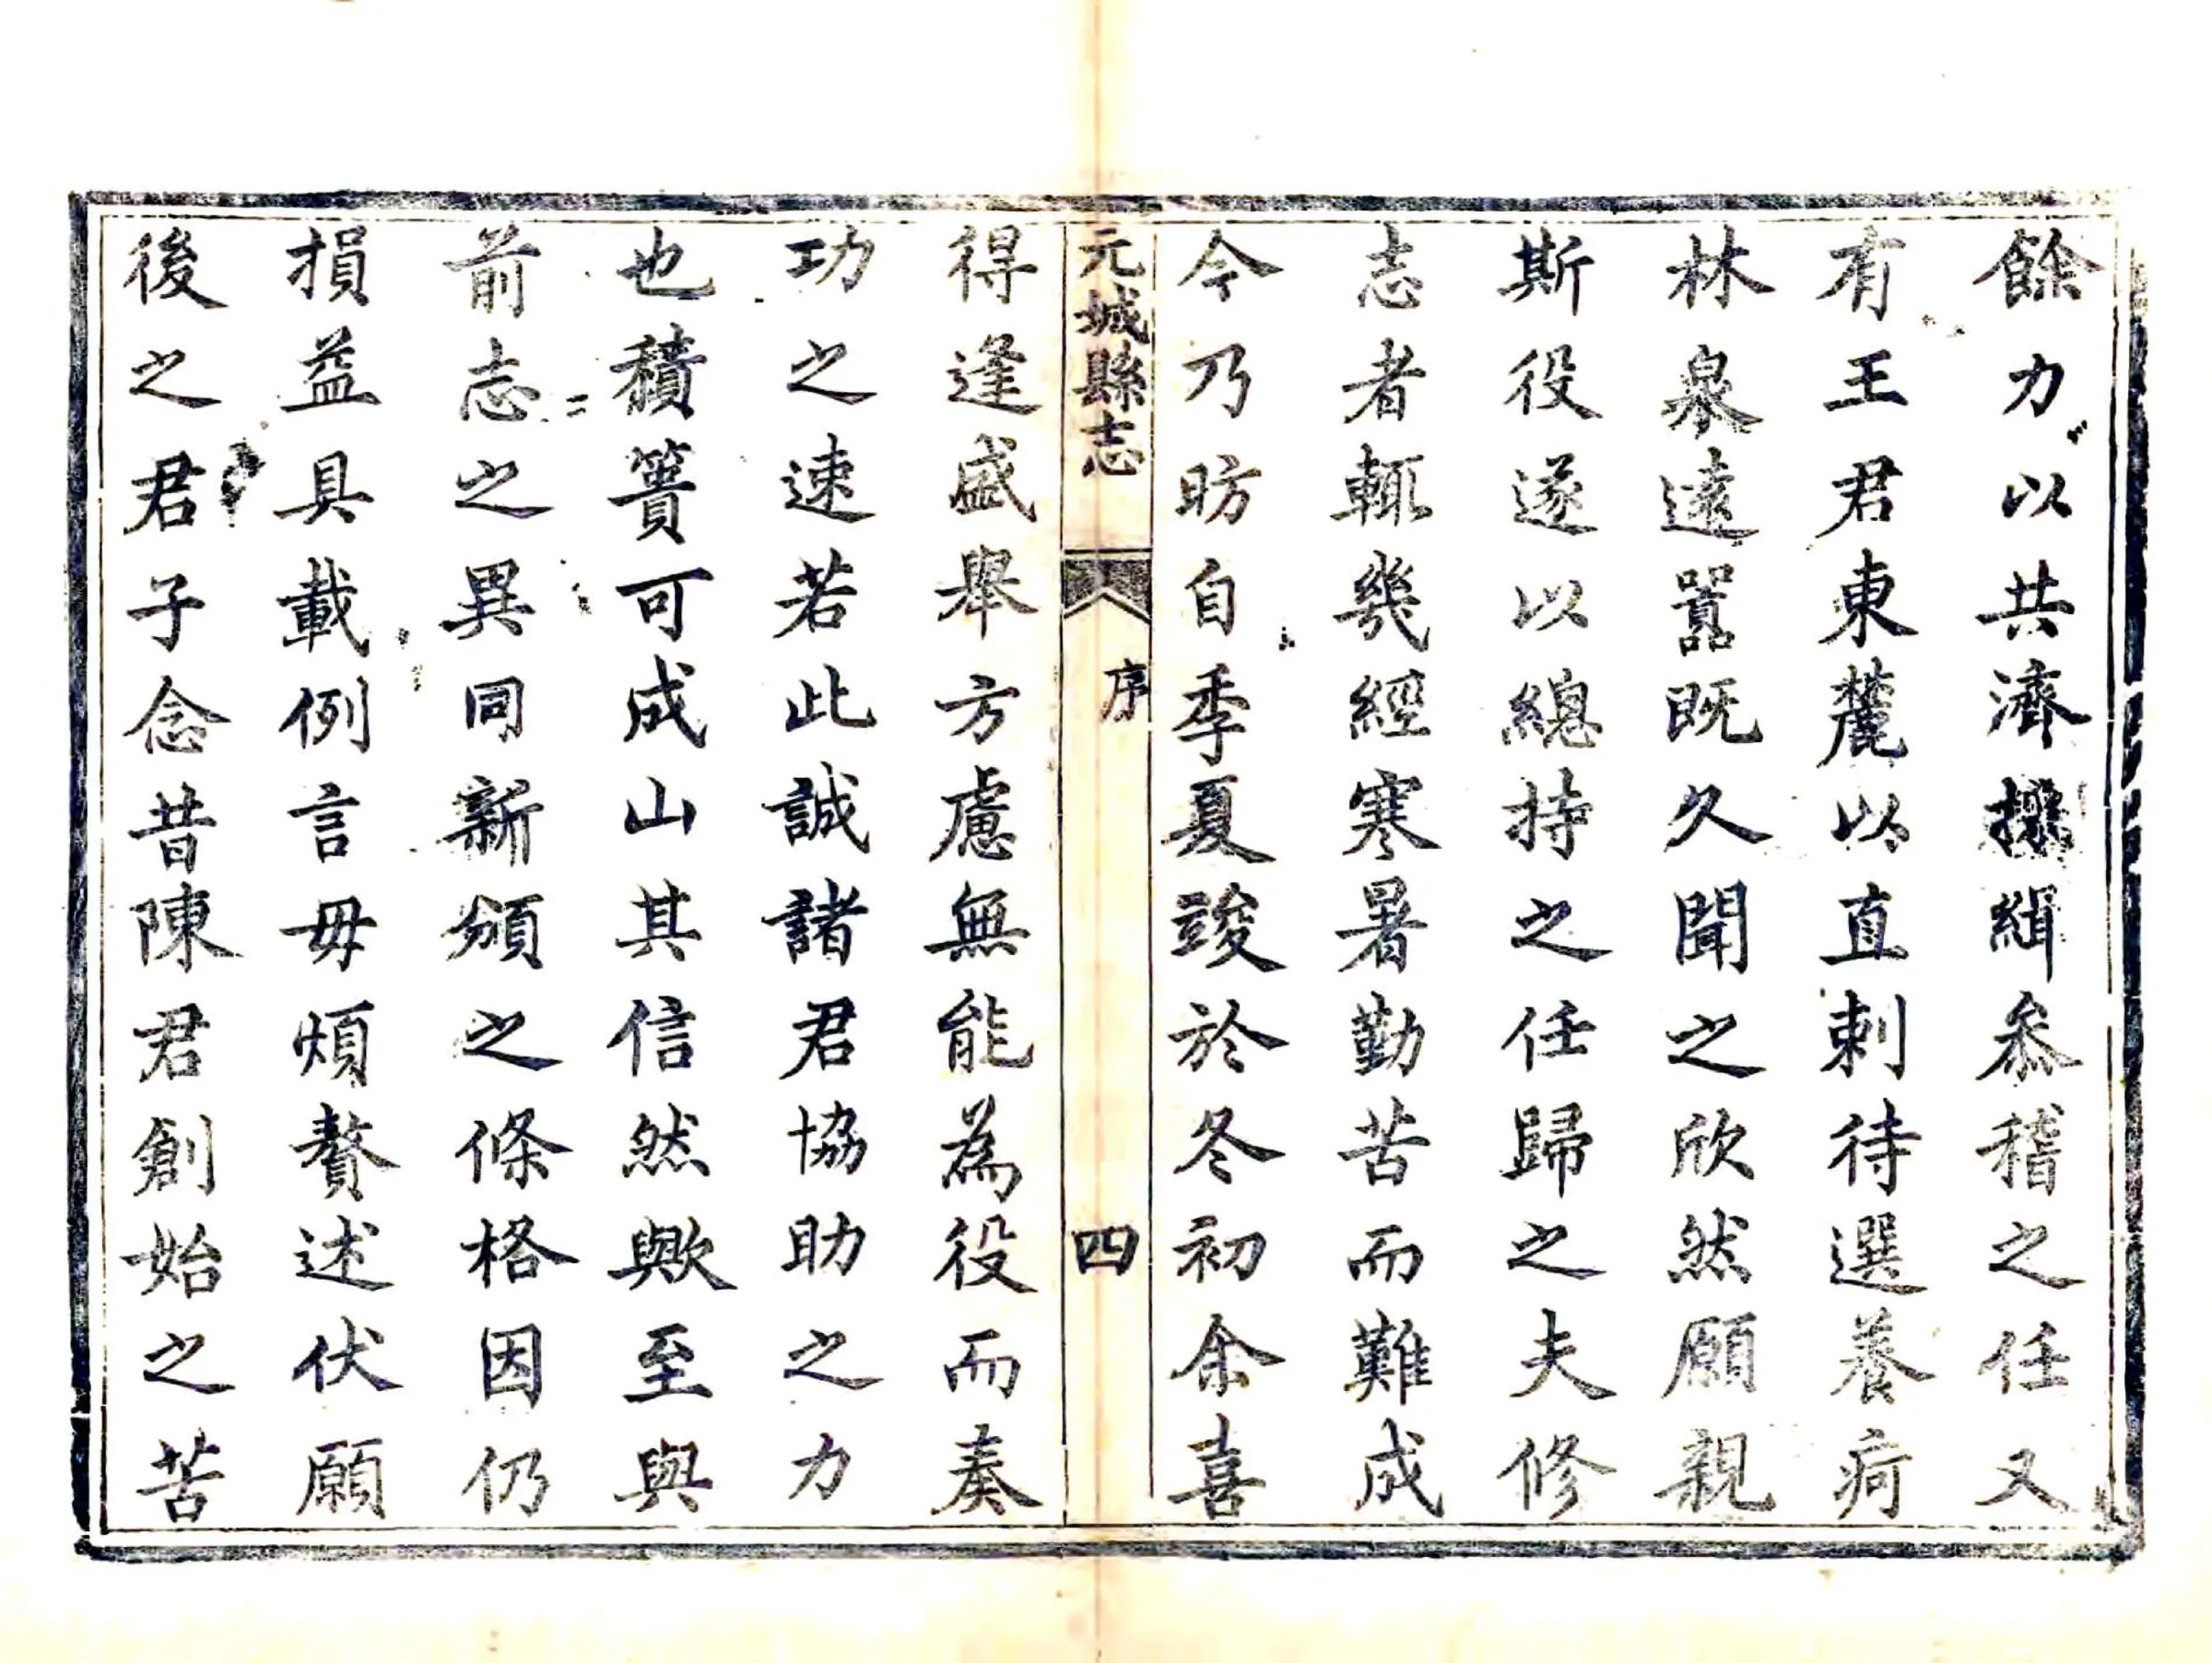 餘力以共濟撰緝叅稽之任又
有王君東麓以直刺待選養疴
林泉遠囂既久聞之欣然願親
斯役遂以總持之任歸之夫修
志者輒幾經寒暑勤苦而難成
今乃昉自季夏竣於冬初余喜
元城縣志
序
四
得逢盛舉方慮無能為役而奏
功之速若此誠諸君協助之力
也積簣可成山其信然歟至與
前志之異同新頒之條格因仍
損益具載例言毋煩贅述伏願
後之君子念昔陳君創始之苦